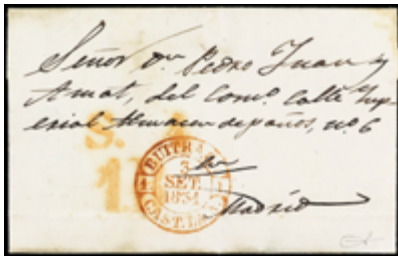 Señor Dn. Pedro Juan y
Amat, del Comº. Calle Imp
erial Almacen de paños, nº. 6
BUITRA
3
SET.
1854
CAST.
Madrid